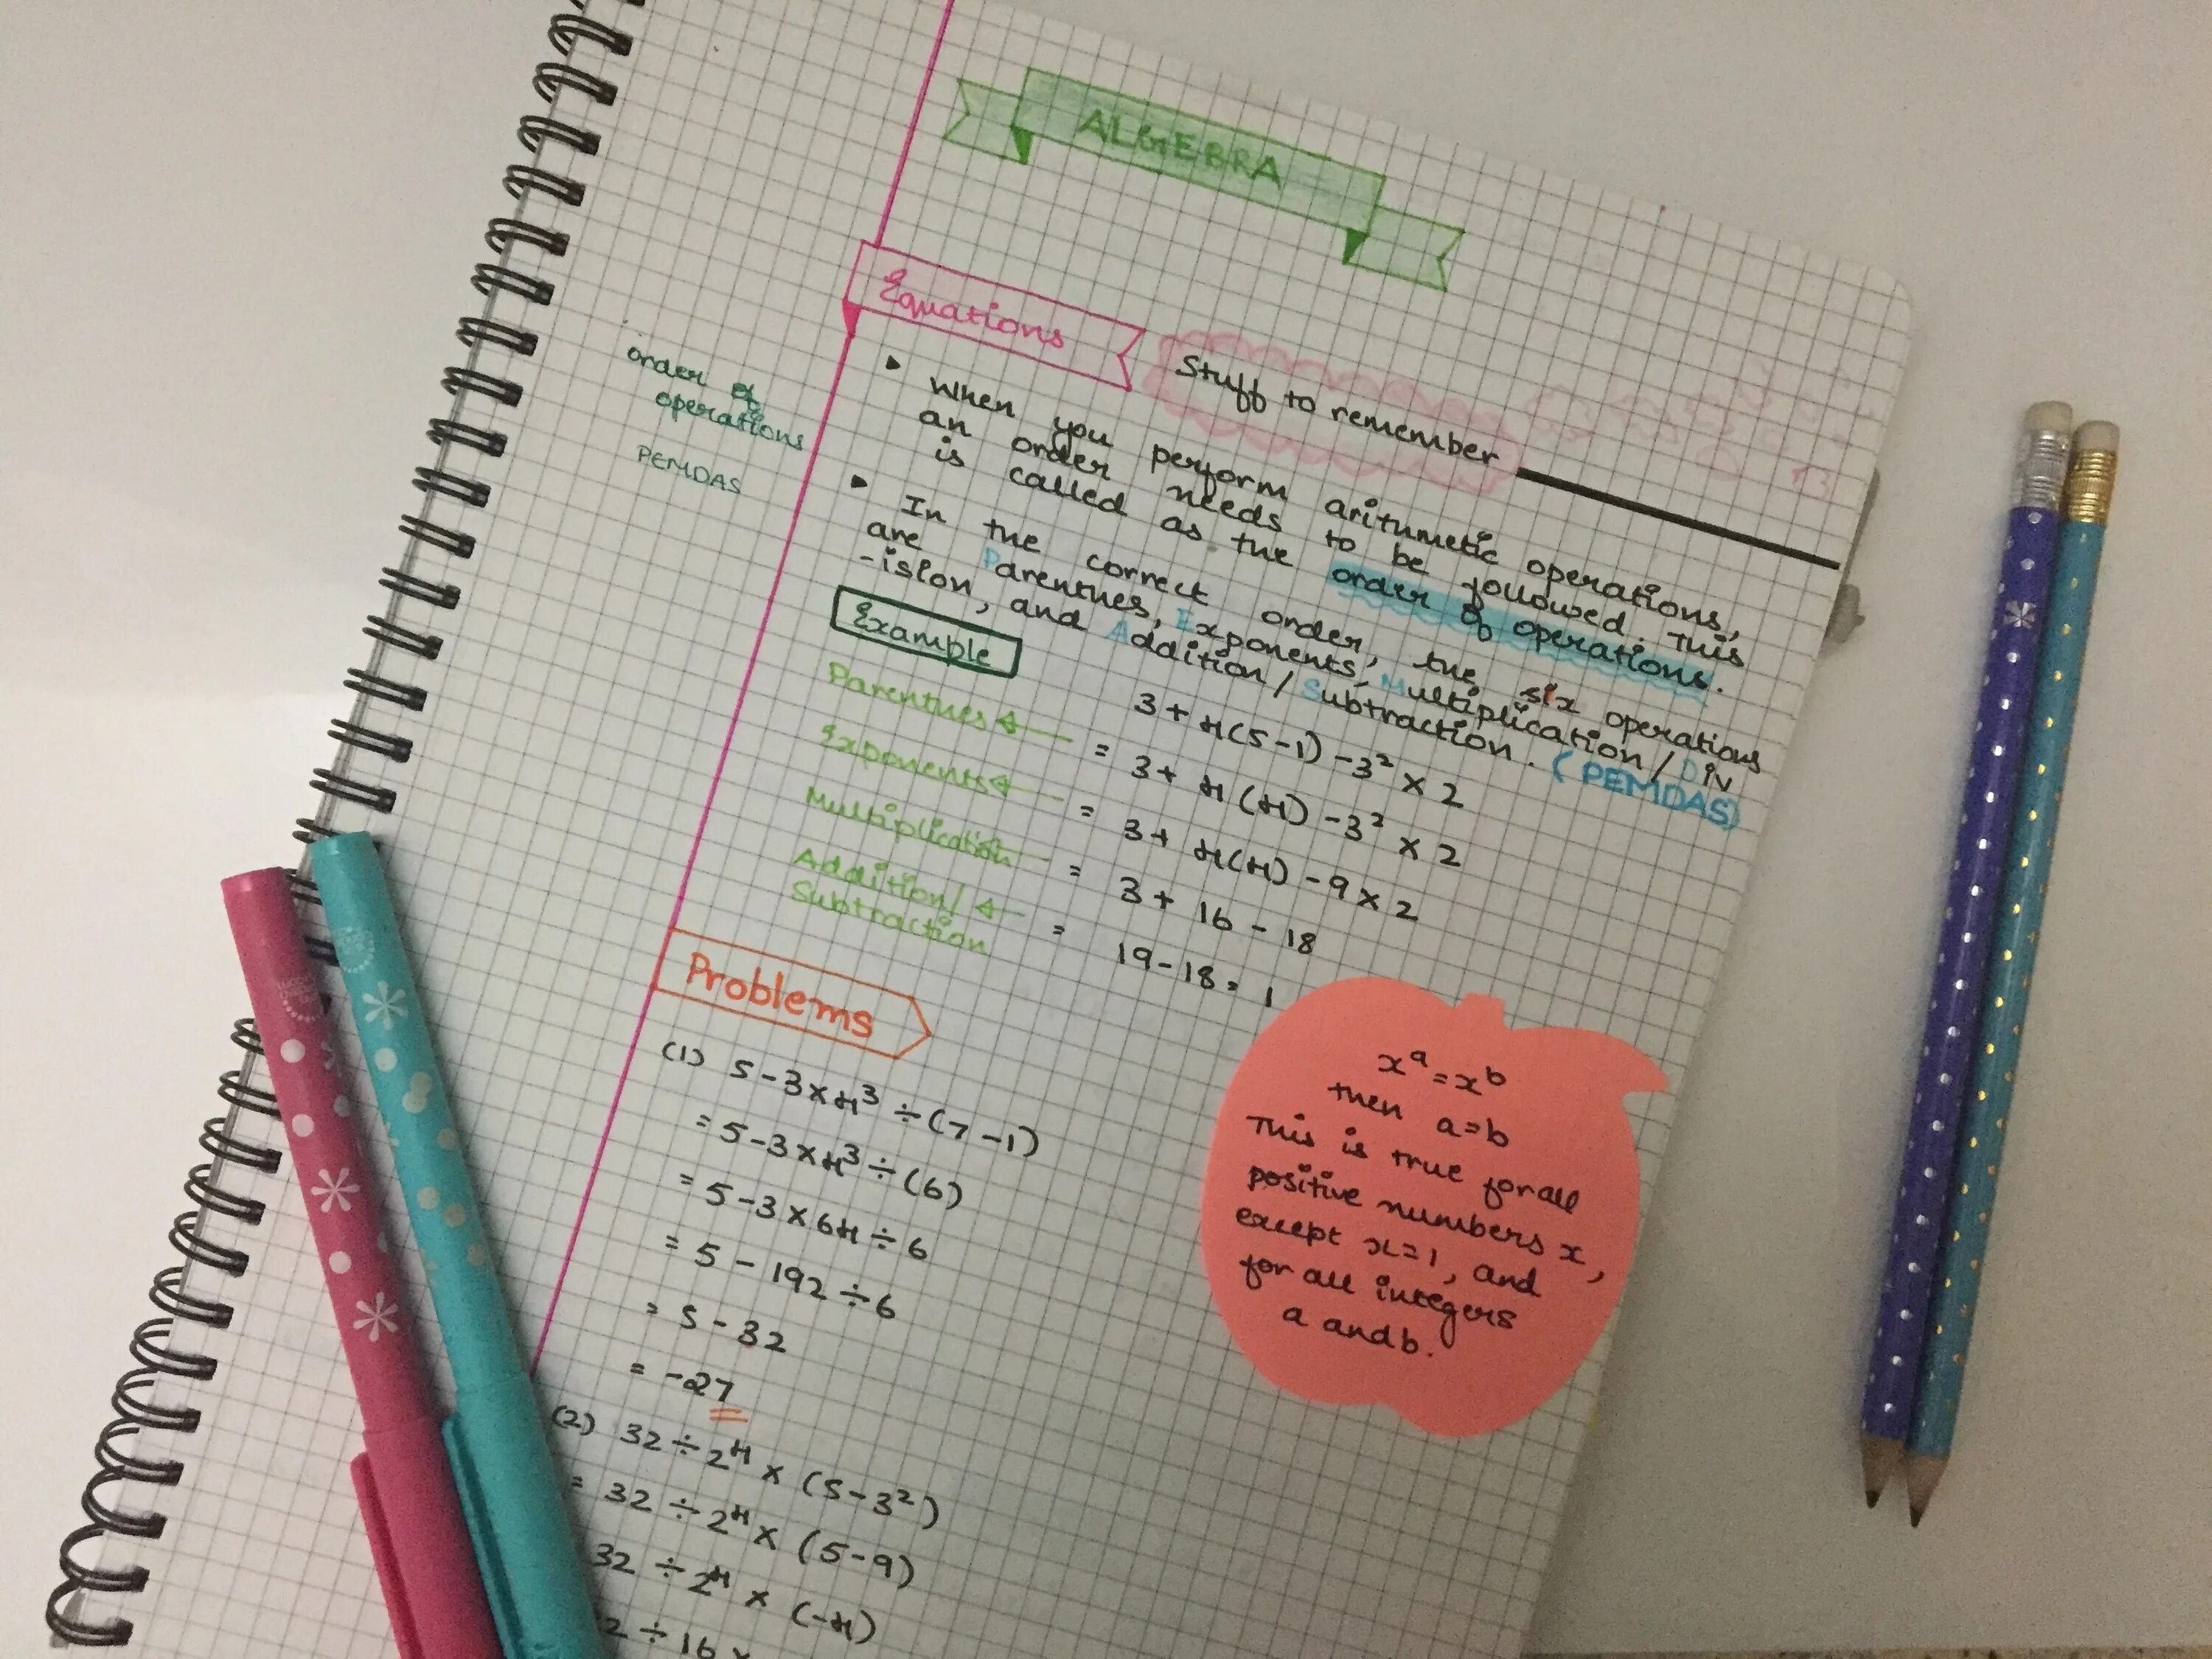 ALGEBRA
Equations
Stuff to remember
order of
operations
PEMDAS
▸ When you perform aritumetic operations,
an order needs to be followed. This
is called as the order of operations.
▸ In the correct order, the six operations
are Parenthes, Exponents, Multiplication/Div
-ision, and Addition/Subtraction. (PEMDAS)
Example
3+4(5-1)-3² x 2
Parenthes = 3+ 4(4) -3² x 2
Exponents = 3+ 4(4) -9 x 2
Multiplication = 3+ 16 - 18
Addition/ = 19-18 = 1
Subtraction
Problems
(1) 5-3x4³÷(7-1)
=5-3x4³÷(6)
= 5-3x64÷6
= 5 - 192÷6
= 5-32
= -27
(2) 32÷2⁴ x (5-3²)
= 32÷2⁴ x (5-9)
32÷2⁴ x (-4)
2÷16 x
xᵃ=xᵇ
then a=b
This is true for all
positive numbers x,
except x=1, and
for all integers
a and b.